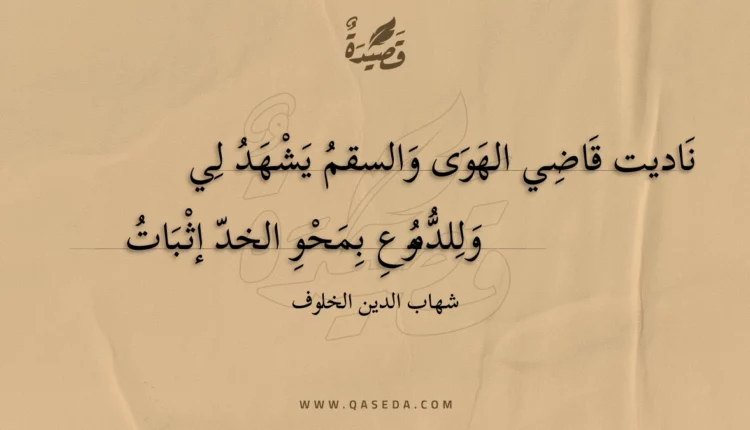 قَصِيدَةٌ
نَاديت قَاضِي الهَوَى وَالسقمُ يَشْهَدُ لِي
وَلِلدُّمُوعِ بِمَحْوِ الخدّ إثْبَاتُ
شهاب الدين الخلوف
WWW.QASEDA.COM